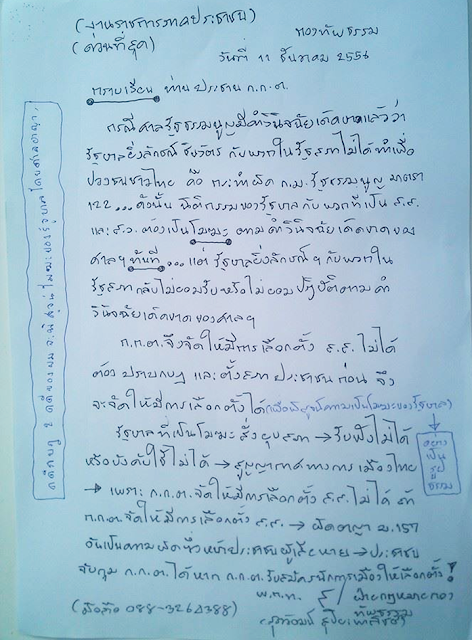 (งานราชการภาคประชาชน)
(ด่วนที่สุด)
กองทัพธรรม
วันที่ 11 ธันวาคม 2556
กราบเรียน ท่านประธาน ก.ก.ต.
กรณีศาลรัฐธรรมนูญมีคำวินิจฉัยเด็ดขาดแล้วว่า
รัฐบาลยิ่งลักษณ์ ชินวัตร กับพวกในรัฐสภาไม่ได้ทำเพื่อ
ปวงชนชาวไทย คือ กระทำผิด ก.ม. รัฐธรรมนูญ มาตรา
122... ดังนั้น นิติกรรมของรัฐบาล กับ พวกที่เป็น ส.ส.
และ ส.ว. ต้องเป็นโมฆะ ตามคำวินิจฉัยเด็ดขาดของ
ศาลฯ ทันที... แต่ รัฐบาลยิ่งลักษณ์ฯ กับพวกใน
รัฐสภา กลับไม่ยอมรับหรือไม่ยอมปฏิบัติตามคำ
วินิจฉัยเด็ดขาดของศาลฯ
ก.ก.ต. จึงจัดให้มีการเลือกตั้ง ส.ส. ไม่ได้
ต้องปราบกบฏ และตั้งสภาประชาชนก่อน จึง
จะจัดให้มีการเลือกตั้งได้ (เพื่อพิสูจน์ความเป็นโมฆะของรัฐบาล)
รัฐบาลที่เป็นโมฆะ สั่งยุบสภา → รับฟังไม่ได้
หรือบังคับใช้ไม่ได้ → สูญญากาศทางการเมืองไทย
→ เพราะ ก.ก.ต. จัดให้มีการเลือกตั้ง ส.ส. ไม่ได้ ถ้า
ก.ก.ต. จัดให้มีการเลือกตั้ง ส.ส. → ผิดอาญา ม.157
อันเป็นความผิดซึ่งหน้าประชาชนผู้เสียหาย → ประชาชน
จับกุม ก.ก.ต. ได้หาก ก.ก.ต. รับสมัครนักการเมืองให้เลือกตั้ง!
พ.ต.ท.
ฝ่ายกฎหมายกอง
ทัพธรรม
(มือถือ 088-3264388)
อย่าง
เป็น
รูป
ธรรม